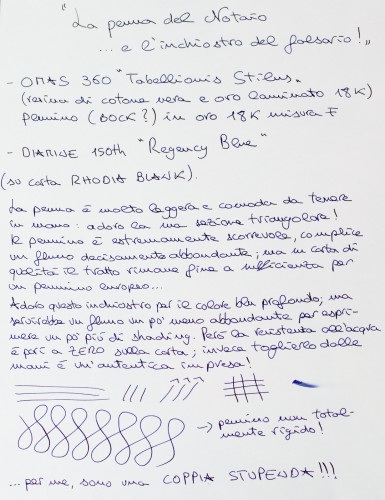 "La penna del Notaio
... e l'inchiostro del falsario!"
- OMAS 360 "Tabellionis Stilus"
(resina di cotone vera e oro laminato 18K)
pennino (BOCK?) in oro 18K misura F
- DIAMINE 150th "Regency Blue"
(su carta RHODIA BLANK).
La penna è molto leggera e comoda da tenere
in mano: adoro la sua sezione triangolare!
Il pennino è estremamente scorrevole, complice
un flusso decisamente abbondante; ma su carta di
qualità il tratto rimane fine a sufficienza per
un pennino europeo...
Adoro questo inchiostro per il colore blu profondo; ma
servirebbe un flusso un po' meno abbondante per espri-
mere un po' più di shading. Però la resistenza all'acqua
è pari a ZERO sulla carta; invece toglierlo dalle
mani è un'autentica impresa!
→ pennino non total-
mente rigido!
... per me, sono una COPPIA STUPENDA!!!